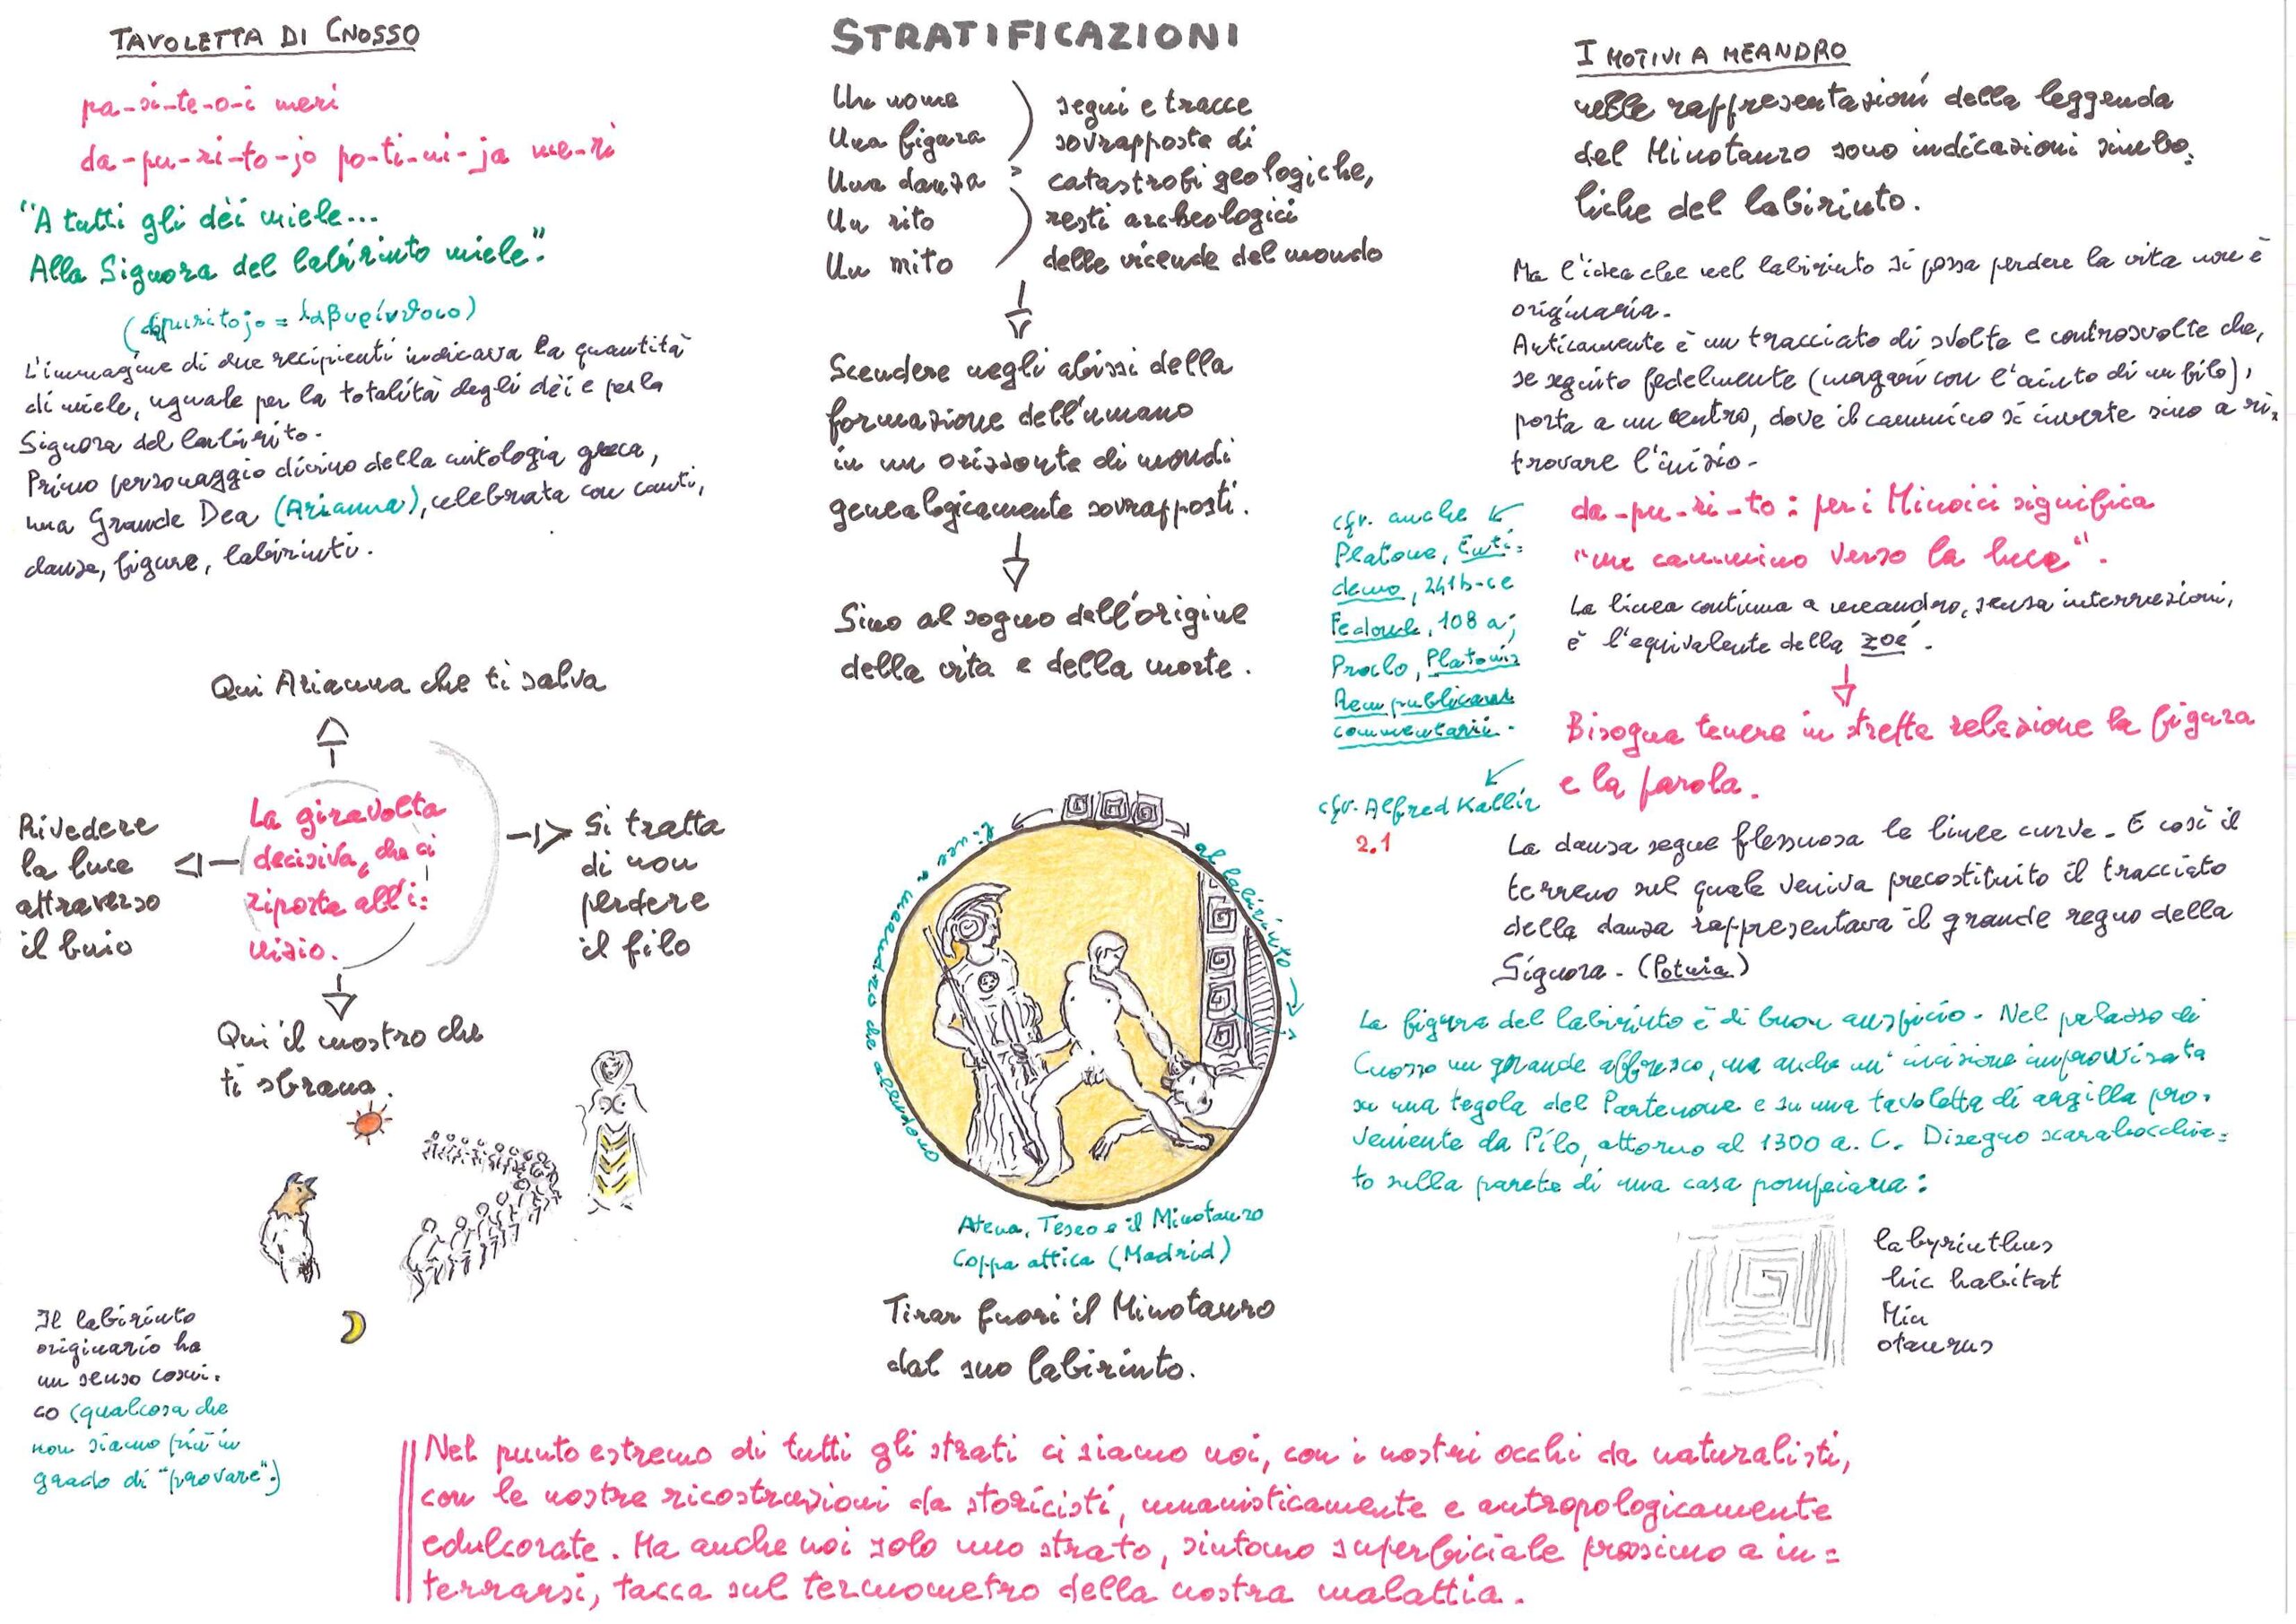 TAVOLETTA DI CNOSSO
pa-si-te-o-i meri
da-pu-ri-to-jo po-ti-ni-ja me-ri
"A tutti gli dèi miele...
Alla Signora del labirinto miele".
(dapuritojo = λαβυρίνθοιο)
L'immagine di due recipienti indicava la quantità
di miele, uguale per la totalità degli dèi e per la
Signora del labirito.
Primo personaggio divino della mitologia greca,
una Grande Dea (Arianna), celebrata con canti,
danze, figure, labirinti.
Qui Arianna che ti salva
Rivedere
la luce
attraverso
il buio
La giravolta
decisiva, che ci
riporta all'i=
nizio.
Si tratta
di non
perdere
il filo
Qui il mostro che
ti sbrana.
Il labirinto
originario ha
un senso cosmi.
co (qualcosa che
non siamo più in
grado di "provare".)
STRATIFICAZIONI
Un nome
Una figura
Una danza
Un rito
Un mito
segni e tracce
sovrapposte di
catastrofi geologiche,
resti archeologici
delle vicende del mondo
Scendere negli abissi della
formazione dell'umano
in un orizzonte di mondi
genealogicamente sovrapposti.
Sino al sogno dell'origine
della vita e della morte.
Linee a meandro che alludono
al labirinto
Atena, Teseo e il Minotauro
Coppa attica (Madrid)
Tirar fuori il Minotauro
dal suo labirinto.
I MOTIVI A MEANDRO
nelle raffresentazioni della leggenda
del Minotauro sono indicazioni simbo=
liche del labirinto.
Ma l'idea che nel labirinto si possa perdere la vita non è
originaria.
Anticamente è un tracciato di svolte e controsvolte che,
se seguito fedelmente (magari con l'aiuto di un filo),
porta a un centro, dove il cammino si inverte sino a ri=
trovare l'inizio.
cfr. anche
Platone, Euti=
demo, 291b-ce
Fedone, 108 a;
Proclo, Platonis
Rempublicam
commentarii.
da-pu-ri-to: per i Minoici significa
"un cammino verso la luce".
La linea continua a meandro, senza interruzioni,
è l'equivalente della zoé.
Bisogna tenere in stretta relazione la figura
e la parola.
cfr. Alfred Kallir
2.1
La danza segue flessuosa le linee curve. E così il
terreno sul quale veniva precostituito il tracciato
della danza rappresentava il grande regno della
Signora. (Potnia)
La figura del labirinto è di buon auspicio. Nel palazzo di
Cnosso un grande affresco, ma anche un'incisione improvvisata
su una tegola del Partenone e su una tavoletta di argilla pro.
veniente da Pilo, attorno al 1300 a. C. Disegno scarabocchia=
to sulla parete di una casa pompeiana:
labyrinthus
hic habitat
Min
otaurus
Nel punto estremo di tutti gli strati ci siamo noi, con i nostri occhi da naturalisti,
con le nostre ricostruzioni da storicisti, umanisticamente e antropologicamente
edulcorate. Ma anche noi solo uno strato, sintomo superficiale prossimo a in=
terrarsi, tacca sul termometro della nostra malattia.